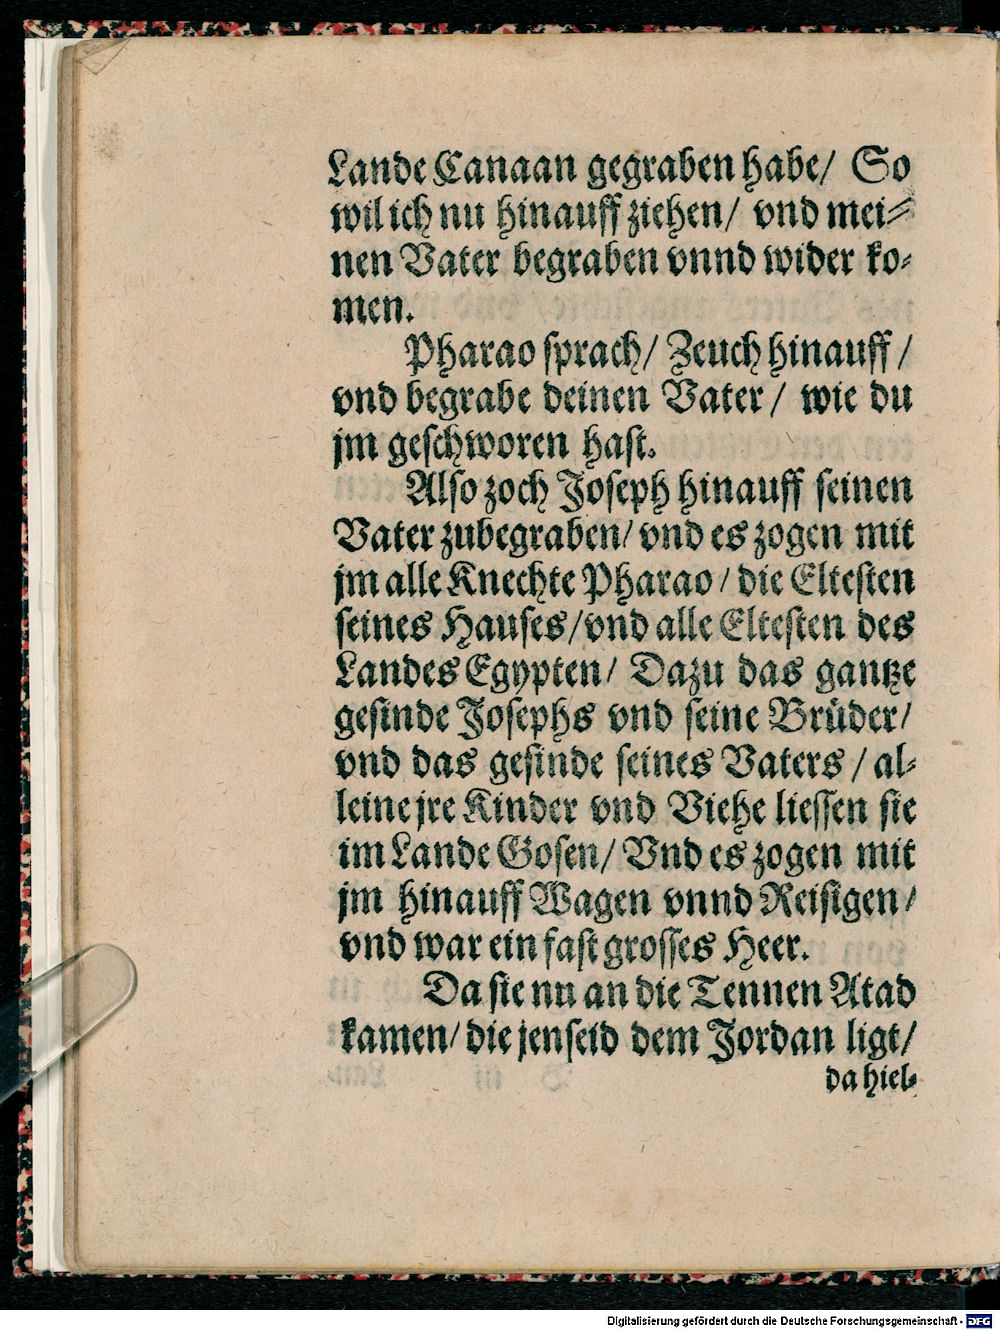 Lande Canaan gegraben habe/ So
wil ich nu hinauff ziehen/ vnd mei⸗
nen Vater begraben vnnd wider ko⸗
men.
Pharao sprach/ Zeuch hinauff/
vnd begrabe deinen Vater/ wie du
jm geschworen hast.
Also zoch Joseph hinauff seinen
Vater zubegraben/ vnd es zogen mit
jm alle Knechte Pharao/ die Eltesten
seines Hauses/ vnd alle Eltesten des
Landes Egypten/ Dazu das gantze
gesinde Josephs vnd seine Brüder/
vnd das gesinde seines Vaters/ al⸗
leine jre Kinder vnd Viehe liessen sie
im Lande Gosen/ Vnd es zogen mit
jm hinauff Wagen vnnd Reisigen/
vnd war ein fast grosses Heer.
Da sie nu an die Tennen Atad
kamen/ die jenseid dem Jordan ligt/
da hiel⸗
Digitalisierung gefördert durch die Deutsche Forschungsgemeinschaft - DFG